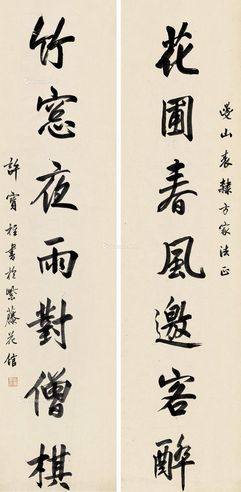 花圃春風邀客醉
山表隸方家法正
竹窗夜雨對僧棋
許寳書於紫藤花館